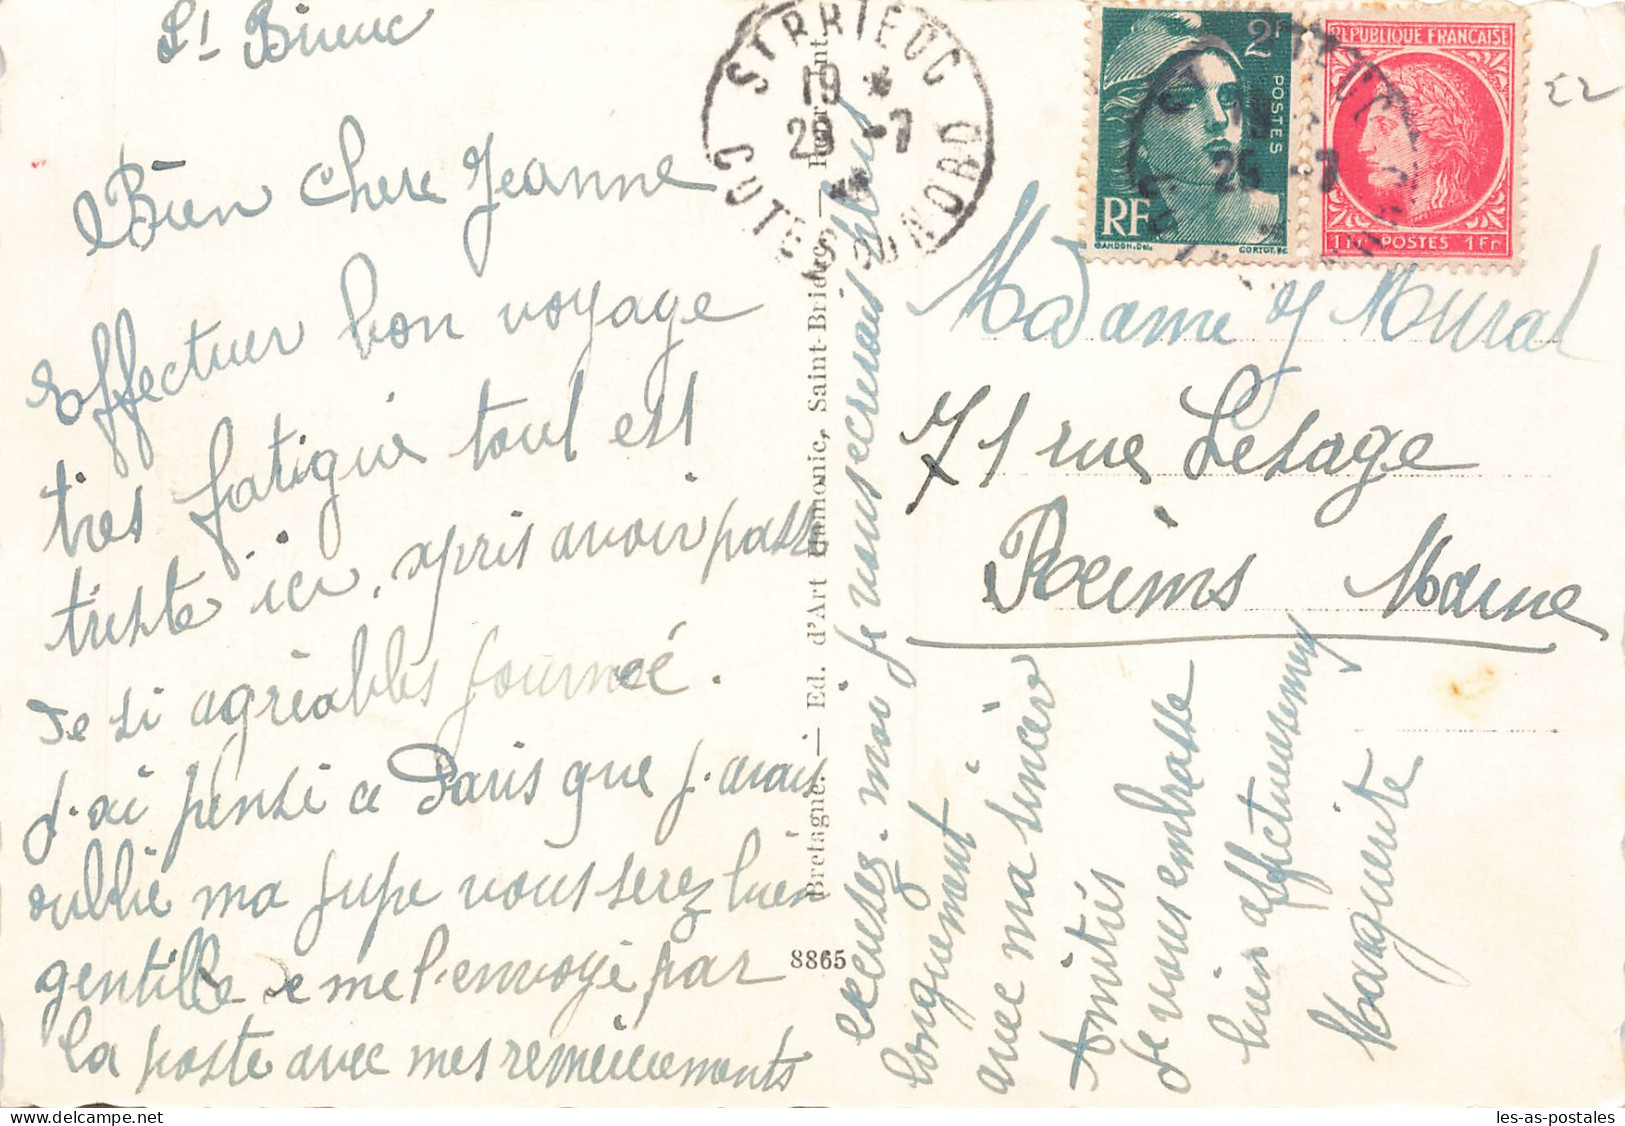 St Brieuc
Bien chere Jeanne
Effectuer bon voyage
tres fatigué tout est
triste ici, apris avoir passe
de si agréables journeé.
j'ai pensé a Paris que j'avais
oublié ma jupe vous serez bien
gentille de me l'envoyé par
la poste avec mes remerciements
excusez-moi je vous ecrerais plus
longuement
avec ma sincer
Amitiés
Je vous embrasse
bien affectueusement
Marguerite
Bretagne. — Ed. d'Art Hamonic, Saint-Brieuc. — Reprint.
8865
ST BRIEUC
19 *
25 -7
COTES DU NORD
2F
POSTES
RF
GANDON.Del.
CORTOT.SC
REPUBLIQUE FRANÇAISE
1Fr POSTES 1Fr
Madame J Mural
71 rue Lesage
Reims Marne
les-as-postales.com